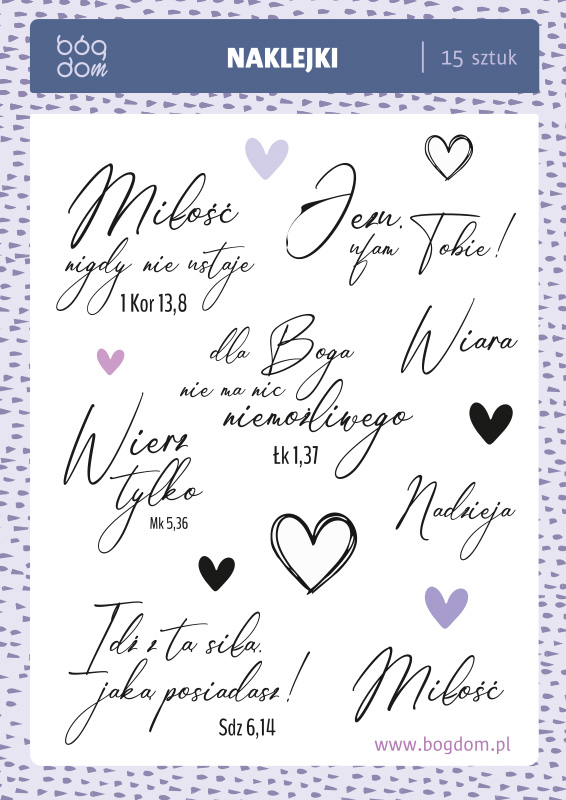 bóg
dom
NAKLEJKI
15 sztuk
Miłość
nigdy nie ustaje
1 Kor 13,8
Jezu,
ufam Tobie!
dla Boga
nie ma nic
niemożliwego
Łk 1,37
Wiara
Wierz
tylko
Mk 5,36
Nadzieja
Idź z tą siłą,
jaką posiadasz!
Sdz 6,14
Miłość
www.bogdom.pl